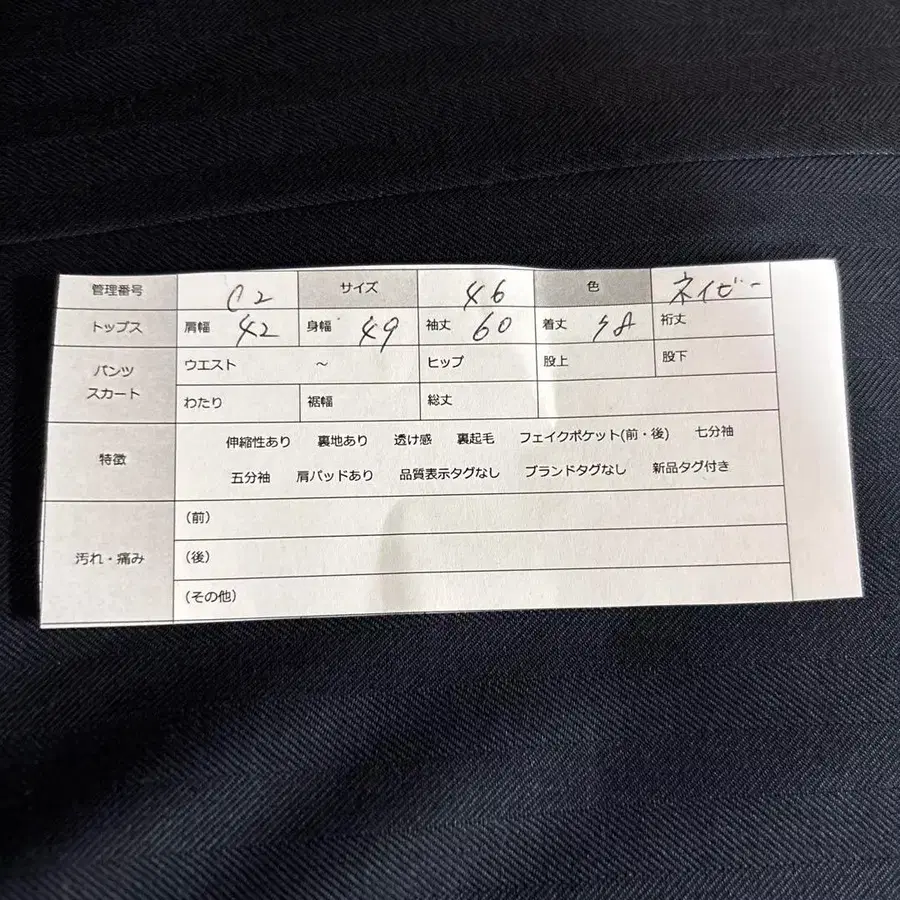 管理番号 C2 サイズ 46 色 ネイビー
トップス 肩幅 42 身幅 49 袖丈 60 着丈 裄丈
パンツ スカート ウエスト ～ ヒップ 股上 股下
わたり 裾幅 総丈
特徴 伸縮性あり 裏地あり 透け感 裏起毛 フェイクポケット(前・後) 七分袖
五分袖 肩パッドあり 品質表示タグなし ブランドタグなし 新品タグ付き
汚れ・痛み (前)
(後)
(その他)